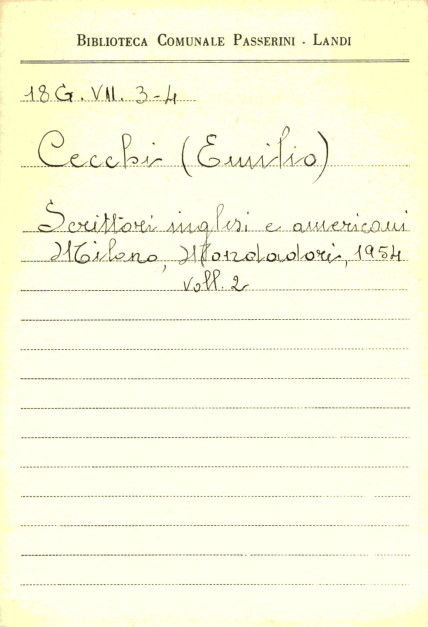 BIBLIOTECA COMUNALE PASSERINI - LANDI
18 G. VII. 3-4
Cecchi (Emilio)
Scrittori inglesi e americani
Milano, Mondadori, 1954
Voll. 2